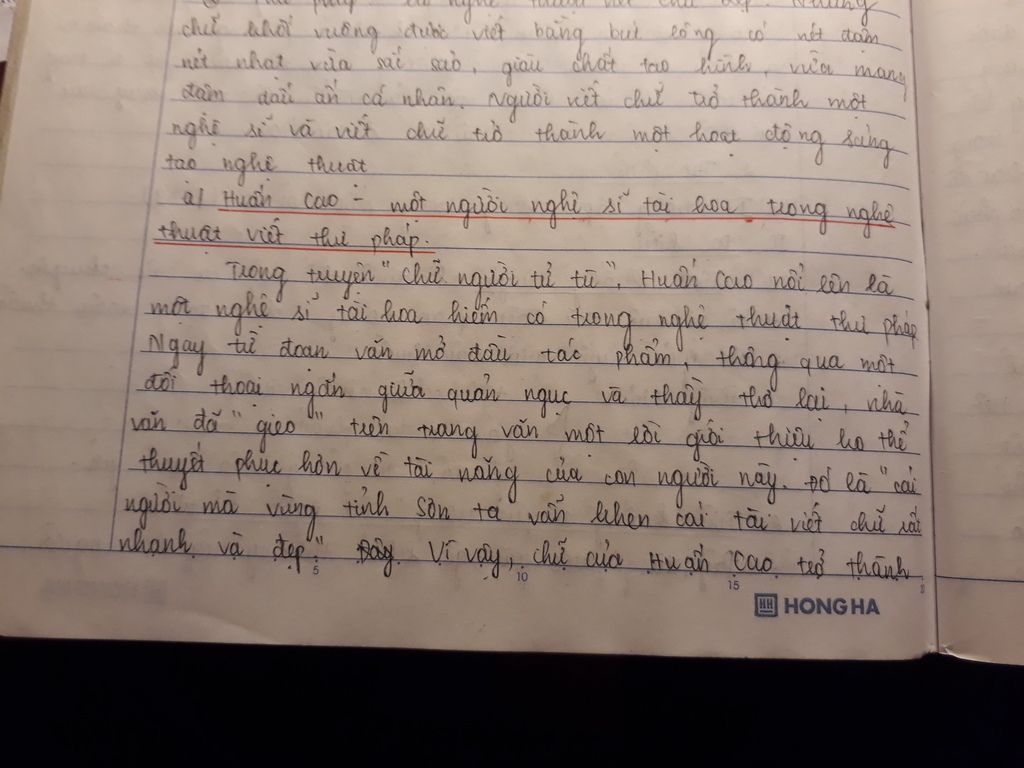 Thư pháp là nghệ thuật viết chữ đẹp. Những
chữ khối vuông được viết bằng bút lông có nét đậm
nét nhạt vừa sắc sảo, giàu chất tạo hình, vừa mang
đậm dấu ấn cá nhân. Người viết chữ trở thành một
nghệ sĩ và viết chữ trở thành một hoạt động sáng
tạo nghệ thuật
a/ Huấn Cao - một người nghệ sĩ tài hoa trong nghệ
thuật viết thư pháp.
Trong truyện "Chữ người tử tù", Huấn Cao nổi lên là
một nghệ sĩ tài hoa hiếm có trong nghệ thuật thư pháp
Ngay từ đoạn văn mở đầu tác phẩm, thông qua một
đối thoại ngắn giữa quản ngục và thầy thơ lại, nhà
văn đã "gieo" trên trang văn một lời giới thiệu ko thể
thuyết phục hơn về tài năng của con người này. Đó là "cái
người mà vùng tỉnh Sơn ta vẫn khen cái tài viết chữ rất
nhanh và đẹp". Vì vậy, chữ của Huấn Cao trở thành
5 10 15
HH HONG HA